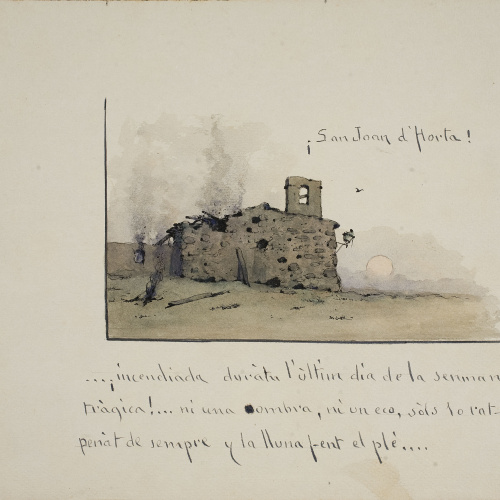 ¡San Joan d'Horta!
....¡incendiada durátu l'últim dia de la senman
trágica!... ni una sombra, ni un eco, sòls lo rat-
penát de sempre y la lluna fent el plé....